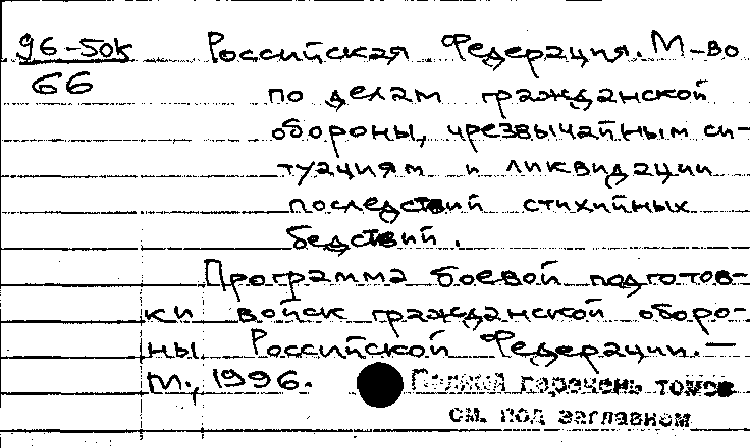 96-50к Российская Федерация. М-во
66
по делам гражданской
обороны, чрезвычайным си-
туациям и ликвидации
последствий стихийных
бедствий.
Программа боевой подготов-
ки войск гражданской оборо-
ны Российской Федерации. —
М., 1996.
Полный перечень томов
см. под заглавием